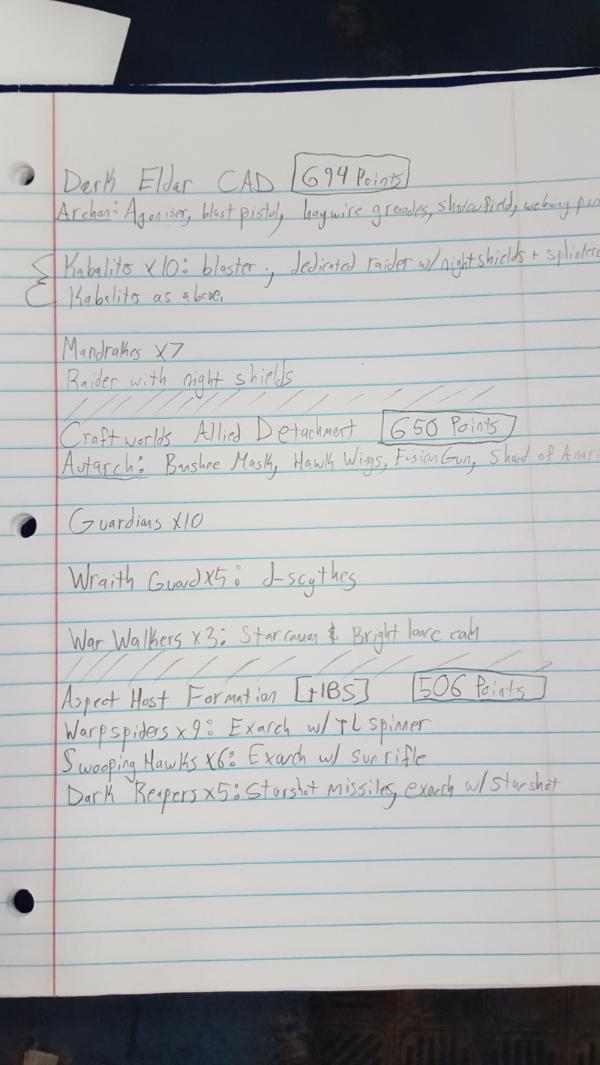 Dark Eldar CAD 694 Points
Archon: Agoniser, blast pistol, haywire greades, shadowfield, webway
Kabalite x10: blaster, dedicated raider w/ nightshields + splinter
Kabalite as above.
Mandrakes x7
Raider with night shields
Craftworlds Allied Detachment 650 Points
Autarch: Banshee Mask, Hawk Wings, Fusion Gun, Shard of
Guardians x10
Wraith Guard x5: d-scythes
War Walkers x3: Starcannon & Bright lance each
Aspect Host Formation [+1BS] 506 Points
Warpspiders x9: Exarch w/ TL spinner
Swooping Hawks x6: Exarch w/ sunrifle
Dark Reapers x5: Starshot missiles, exarch w/ starshot